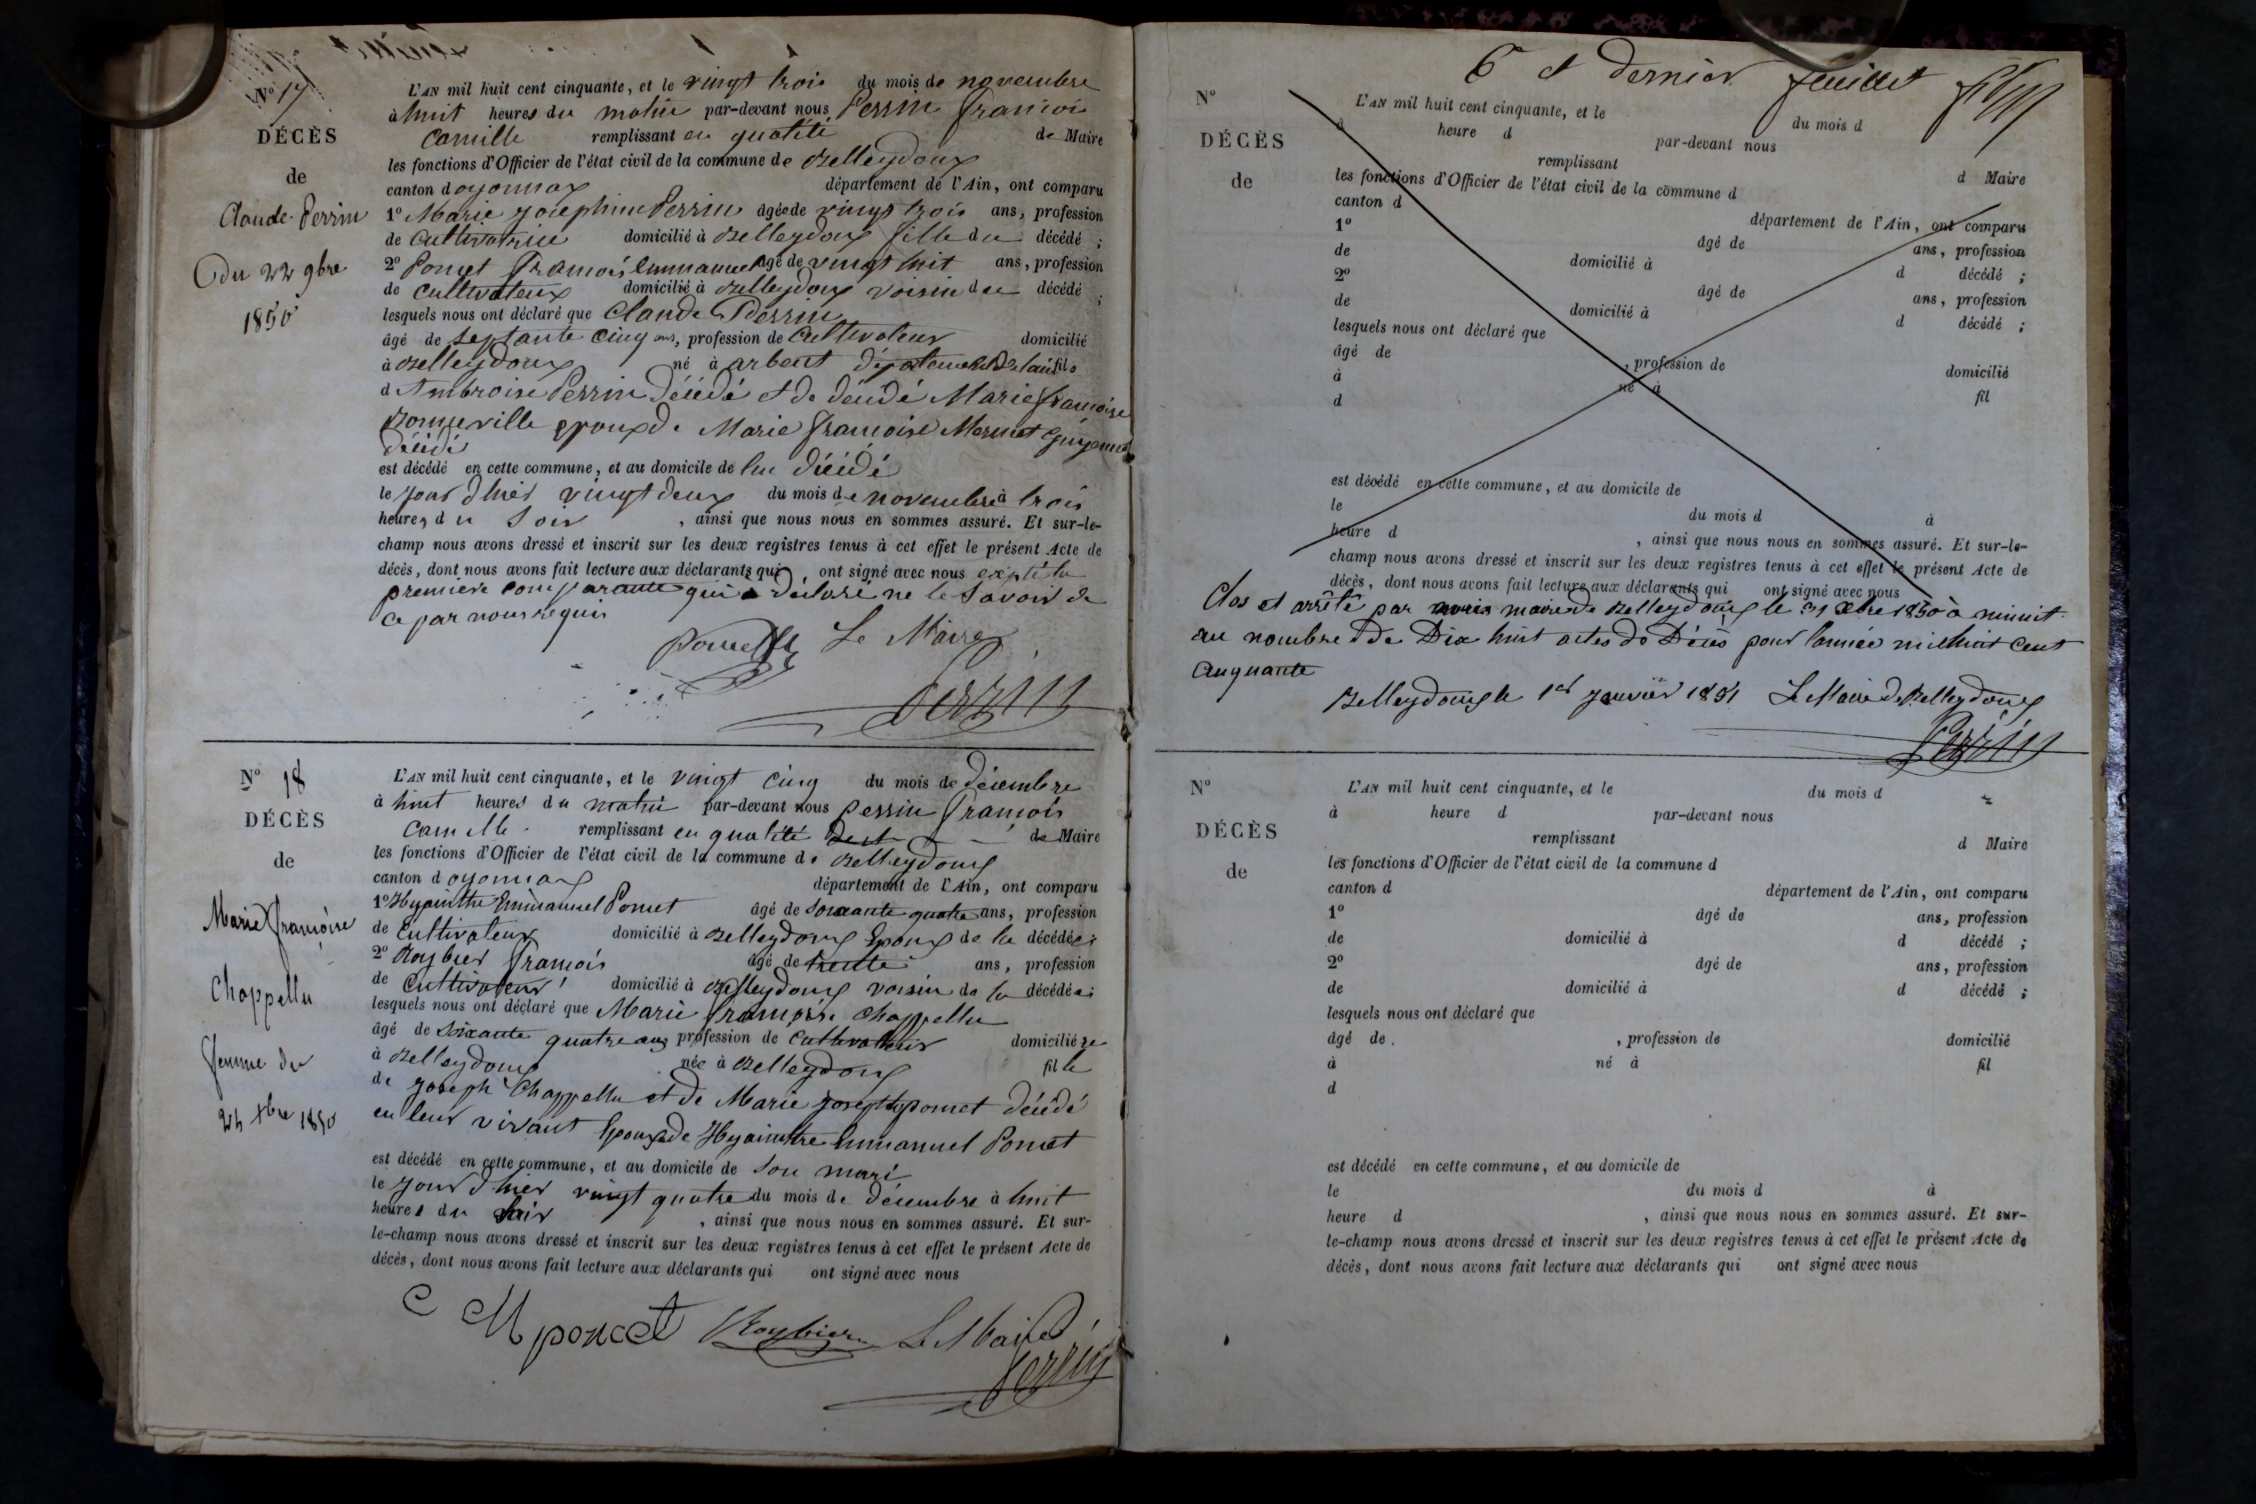 N° 17
DÉCÈS
de
Claude Perrin
du 22 9bre
1850
L'AN mil huit cent cinquante, et le vingt trois du mois de novembre
à huit heures du matin par-devant nous Perrin françois
Camille remplissant en qualité de Maire
les fonctions d'Officier de l'état civil de la commune de Belleydoux
canton d oyonnax département de l'Ain, ont comparu
1° Marie Josephine Perrin âgée de vingt trois ans, profession
de Cultivatrice domicilié à Belleydoux fille du décédé ;
2° Poncet françois Emmanuel âgé de vingt huit ans, profession
de Cultivateur domicilié à Belleydoux voisin du décédé ;
lesquels nous ont déclaré que Claude Perrin
âgé de septante cinq ans, profession de Cultivateur domicilié
à Belleydoux né à arbent département de l'ain fils
d Ambroise Perrin décédé et de décédé Marie françoise
Bonneville époux de Marie françoise Mermet
décédé
est décédé en cette commune, et au domicile de lui décédé
le jour d'hier vingt deux du mois de novembre à trois
heures du Soir , ainsi que nous nous en sommes assuré. Et sur-le-
champ nous avons dressé et inscrit sur les deux registres tenus à cet effet le présent Acte de
décès, dont nous avons fait lecture aux déclarants qui ont signé avec nous excepté la
première comparante qui a déclaré ne le savoir de
ce par nous requis
Poncet Le Maire
Perrin
N° 18
DÉCÈS
de
Marie françoise
Chappellu
femme du
24 Xbre 1850
L'AN mil huit cent cinquante, et le vingt cinq du mois de décembre
à huit heures du matin par-devant nous Perrin françois
Camille remplissant en qualité de Maire
les fonctions d'Officier de l'état civil de la commune de Belleydoux
canton d oyonnax département de l'Ain, ont comparu
1° Hyacinthe Emmanuel Poncet âgé de soixante quatre ans, profession
de Cultivateur domicilié à Belleydoux Epoux de la décédée ;
2° Roybier françois âgé de trente ans, profession
de Cultivateur domicilié à Belleydoux voisin de la décédée ;
lesquels nous ont déclaré que Marie françoise Chappellu
âgé de soixante quatre ans profession de Cultivateur domiciliée
à Belleydoux née à Belleydoux fille
de Joseph Chappellu et de Marie Josephte poncet décédé
en leur vivant Epouse de Hyacinthe Emmanuel Poncet
est décédé en cette commune, et au domicile de son mari
le jour d'hier vingt quatre du mois de décembre à huit
heures du soir , ainsi que nous nous en sommes assuré. Et sur-
le-champ nous avons dressé et inscrit sur les deux registres tenus à cet effet le présent Acte de
décès, dont nous avons fait lecture aux déclarants qui ont signé avec nous
poncet Roybier Le Maire
Perrin
6 et dernier feuillet
N°
DÉCÈS
de
L'AN mil huit cent cinquante, et le du mois d
à heure d par-devant nous
remplissant d Maire
les fonctions d'Officier de l'état civil de la commune d
canton d département de l'Ain, ont comparu
1° âgé de ans, profession
de domicilié à d décédé ;
2° âgé de ans, profession
de domicilié à d décédé ;
lesquels nous ont déclaré que
âgé de , profession de domicilié
à né à fil
d
est décédé en cette commune, et au domicile de
le du mois d à
heure d , ainsi que nous nous en sommes assuré. Et sur-le-
champ nous avons dressé et inscrit sur les deux registres tenus à cet effet le présent Acte de
décès, dont nous avons fait lecture aux déclarants qui ont signé avec nous
Clos et arrêté par maire de Belleydoux le 31 Xbre 1850 à minuit
au nombre de Dix huit actes de Décès pour l'année mil huit cent
Cinquante
Belleydoux le 1er janvier 1851 Le Maire de Belleydoux
Perrin
N°
DÉCÈS
de
L'AN mil huit cent cinquante, et le du mois d
à heure d par-devant nous
remplissant d Maire
les fonctions d'Officier de l'état civil de la commune d
canton d département de l'Ain, ont comparu
1° âgé de ans, profession
de domicilié à d décédé ;
2° âgé de ans, profession
de domicilié à d décédé ;
lesquels nous ont déclaré que
âgé de , profession de domicilié
à né à fil
d
est décédé en cette commune, et au domicile de
le du mois d à
heure d , ainsi que nous nous en sommes assuré. Et sur-
le-champ nous avons dressé et inscrit sur les deux registres tenus à cet effet le présent Acte de
décès, dont nous avons fait lecture aux déclarants qui ont signé avec nous